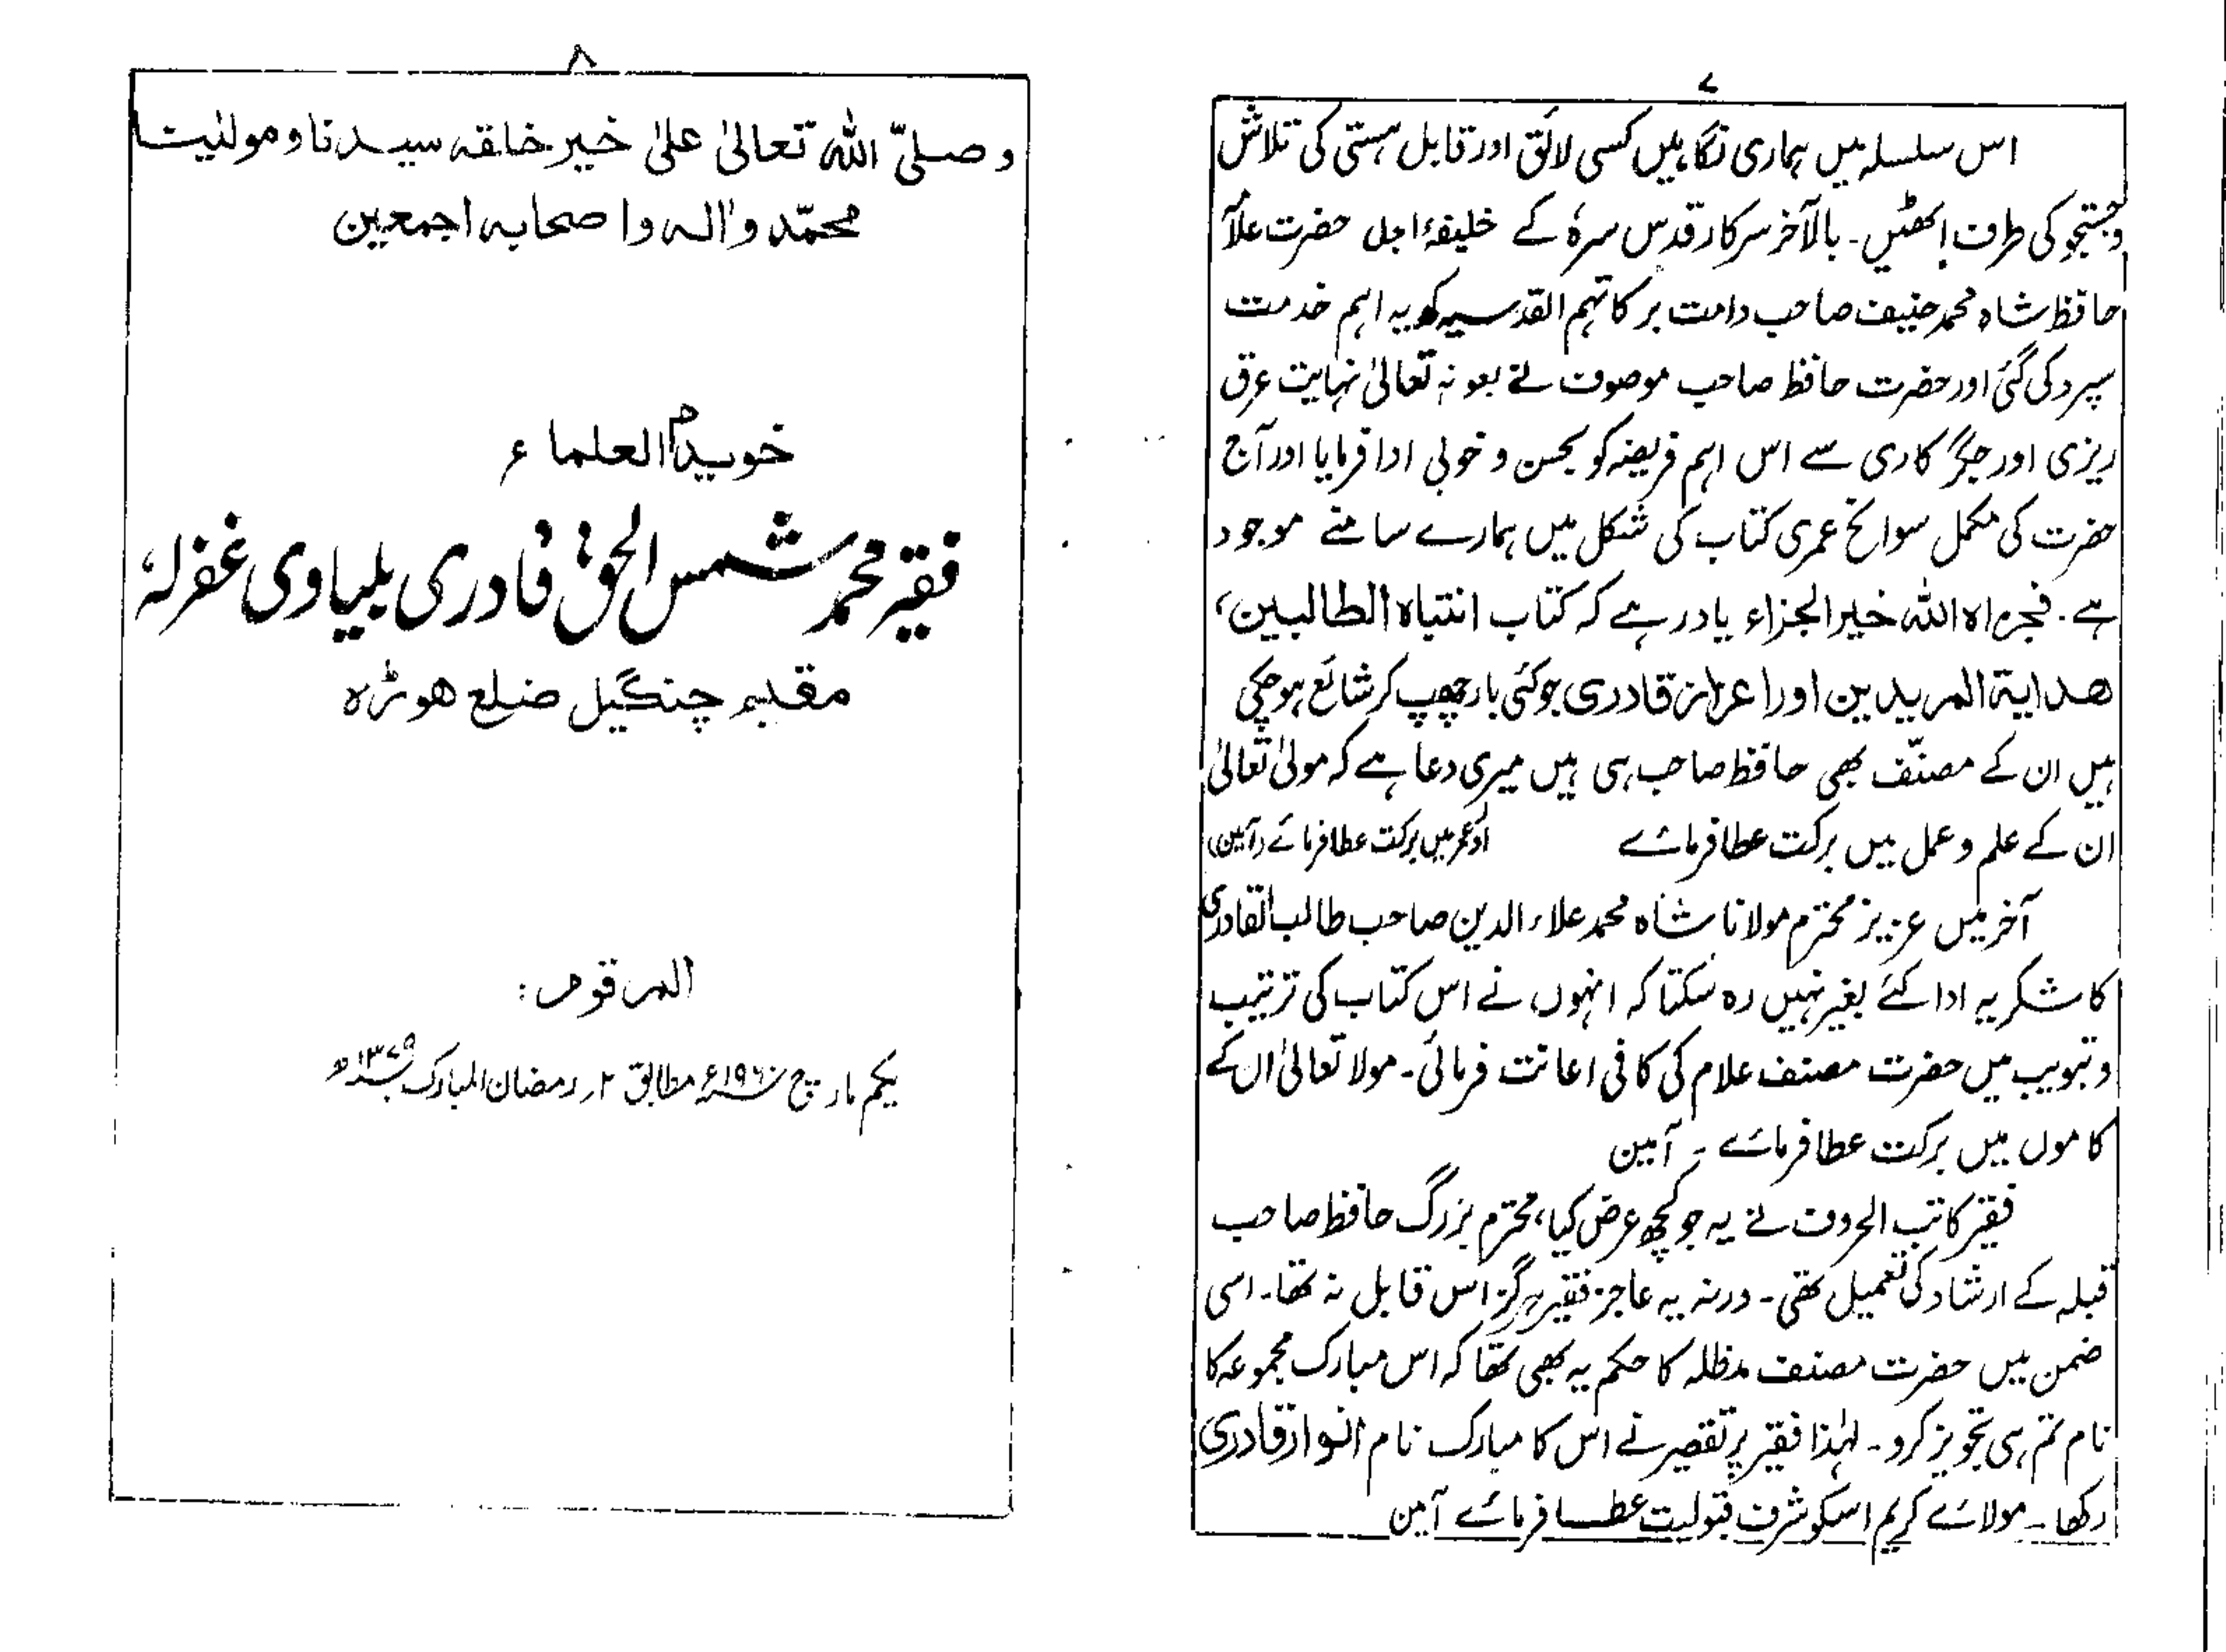 ۷
اس سلسلہ میں ہماری نگاہیں کسی لائق اور قابل ہستی کی تلاش
وجستجو کی طرف اٹھیں۔ بالآخر سرکار قدس سرہٗ کے خلیفۂ اجل حضرت علاّ
حافظ شاہ محمد حنیف صاحب دامت برکاتہم القدسیہ کو یہ اہم خدمت
سپرد کی گئی اور حضرت حافظ صاحب موصوف نے بعونہ تعالیٰ نہایت عرق
ریزی اور جگر کاری سے اس اہم فریضہ کو بحسن و خوبی ادا فرمایا اور آج
حضرت کی مکمل سوانح عمری کتاب کی شکل میں ہمارے سامنے موجود
ہے۔ فجزاہ اللہ خیر الجزاء یاد رہے کہ کتاب انتباہ الطالبین،
ھدایۃ المریدین اور اعزاز قادری جو کئی بار چھپ کر شائع ہو چکی
ہیں ان کے مصنّف بھی حافظ صاحب ہی ہیں میری دعا ہے کہ مولیٰ تعالیٰ
ان کے علم و عمل میں برکت عطا فرمائے اور عمر میں برکت عطا فرمائے (آمین)
آخر میں عزیز محترم مولانا شاہ محمد علاء الدین صاحب طالب القادری
کا شکریہ ادا کئے بغیر نہیں رہ سکتا کہ انہوں نے اس کتاب کی ترتیب
و تبویب میں حضرت مصنف علام کی کافی اعانت فرمائی۔ مولا تعالیٰ ان کے
کاموں میں برکت عطا فرمائے ۔ آمین
فقیر کاتب الحروف نے یہ جو کچھ عرض کیا، محترم بزرگ حافظ صاحب
قبلہ کے ارشاد کی تعمیل تھی۔ ورنہ یہ عاجز فقیر ہرگز اس قابل نہ تھا۔ اسی
ضمن میں حضرت مصنف مدظلہ کا حکم یہ بھی تھا کہ اس مبارک مجموعہ کا
نام تم ہی تجویز کرو۔ لہٰذا فقیر پر تقصیر نے اس کا مبارک نام انوار قادری
رکھا۔ مولائے کریم اسکو شرف قبولیت عطا فرمائے آمین
۸
وصلیّ اللہ تعالیٰ علیٰ خیر خلقہ سیدنا ومولٰینا
محمّد واٰلہ واصحابہ اجمعین
خویدم العلماء
فقیر محمد شمس الحق قادری بلیاوی غفرلہٗ
مقیم چنگیل ضلع ھوڑہ
المرقوم:
یکم مارچ ۱۹۶۰ء مطابق ۲ رمضان المبارک ۱۳۷۹ھ